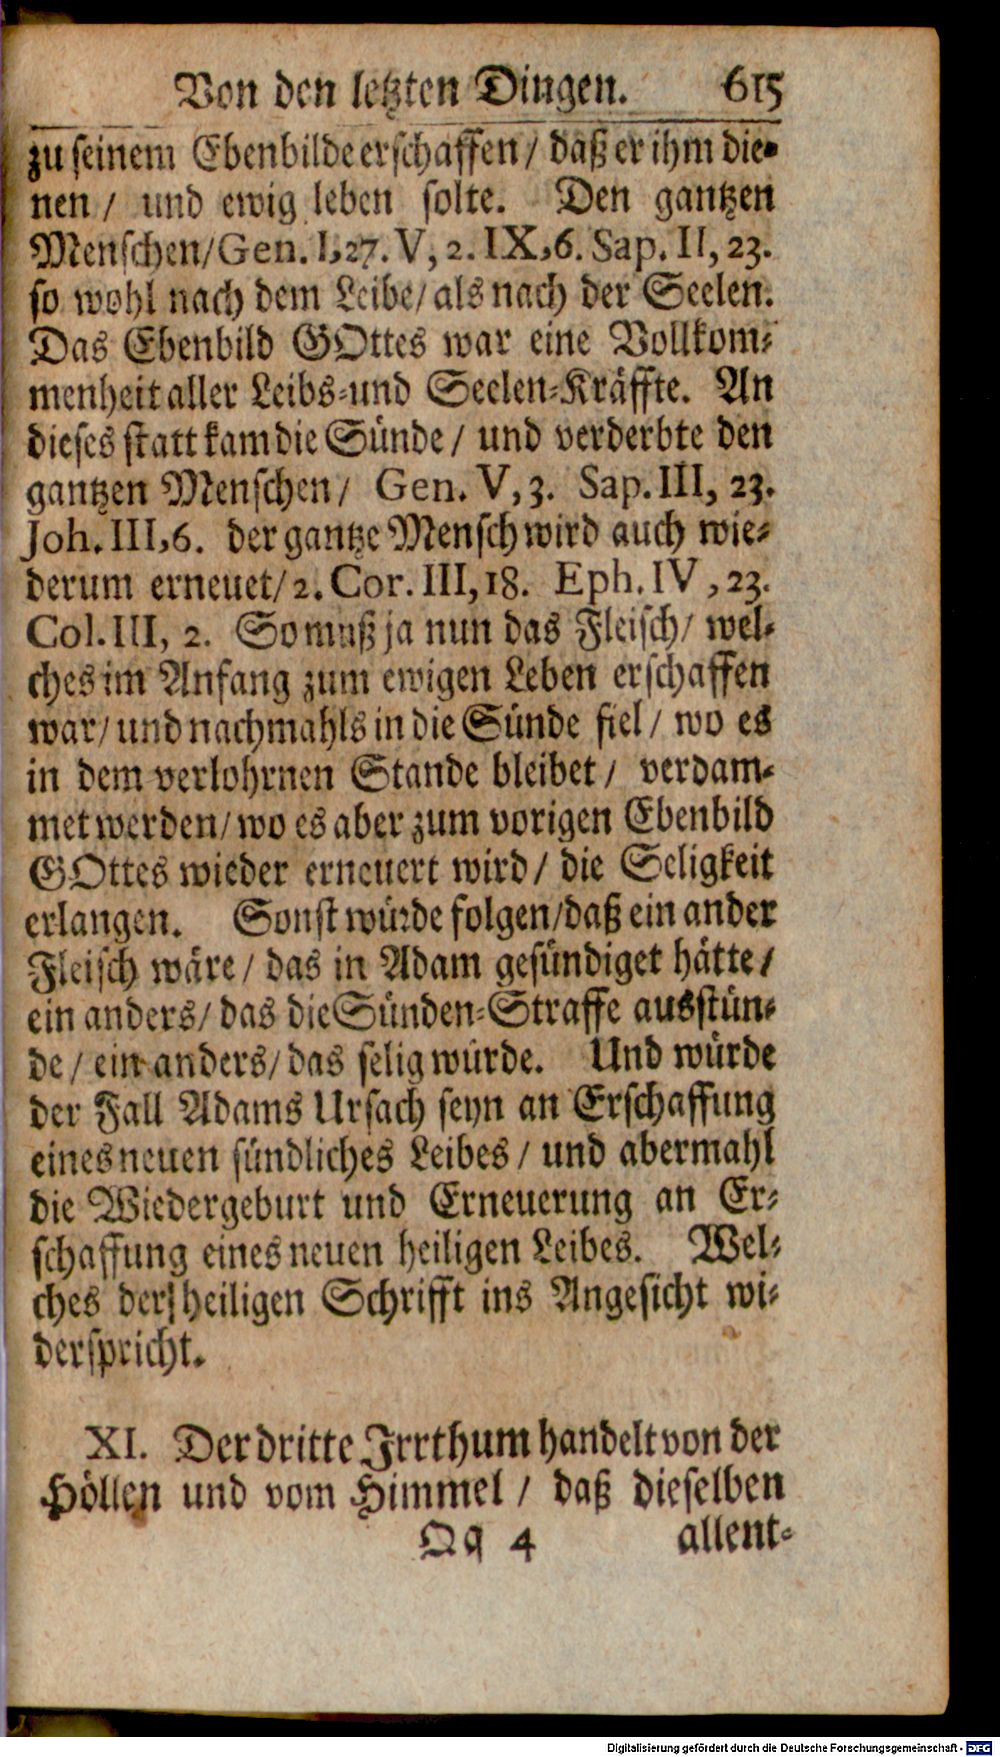 Von den letzten Dingen. 615
zu seinem Ebenbilde erschaffen / daß er ihm die-
nen / und ewig leben solte. Den gantzen
Menschen/Gen. I,27. V, 2. IX,6. Sap. II, 23.
so wohl nach dem Leibe/ als nach der Seelen.
Das Ebenbild GOttes war eine Vollkom-
menheit aller Leibs-und Seelen-Kräffte. An
dieses statt kam die Sünde / und verderbte den
gantzen Menschen/ Gen. V, 3. Sap. III, 23.
Joh. III,6. der gantze Mensch wird auch wie-
derum erneuet/ 2. Cor. III, 18. Eph. IV, 23.
Col. III, 2. So muß ja nun das Fleisch/ wel-
ches im Anfang zum ewigen Leben erschaffen
war/ und nachmahls in die Sünde fiel / wo es
in dem verlohrnen Stande bleibet / verdam-
met werden/ wo es aber zum vorigen Ebenbild
GOttes wieder erneuert wird / die Seligkeit
erlangen. Sonst würde folgen/daß ein ander
Fleisch wäre / das in Adam gesündiget hätte /
ein anders/ das die Sünden-Straffe ausstün-
de / ein anders/ das selig würde. Und würde
der Fall Adams Ursach seyn an Erschaffung
eines neuen sündliches Leibes / und abermahl
die Wiedergeburt und Erneuerung an Er-
schaffung eines neuen heiligen Leibes. Wel-
ches der heiligen Schrifft ins Angesicht wi-
derspricht.
XI. Der dritte Irrthum handelt von der
Höllen und vom Himmel / daß dieselben
Qq 4 allent-
Digitalisierung gefördert durch die Deutsche Forschungsgemeinschaft - DFG